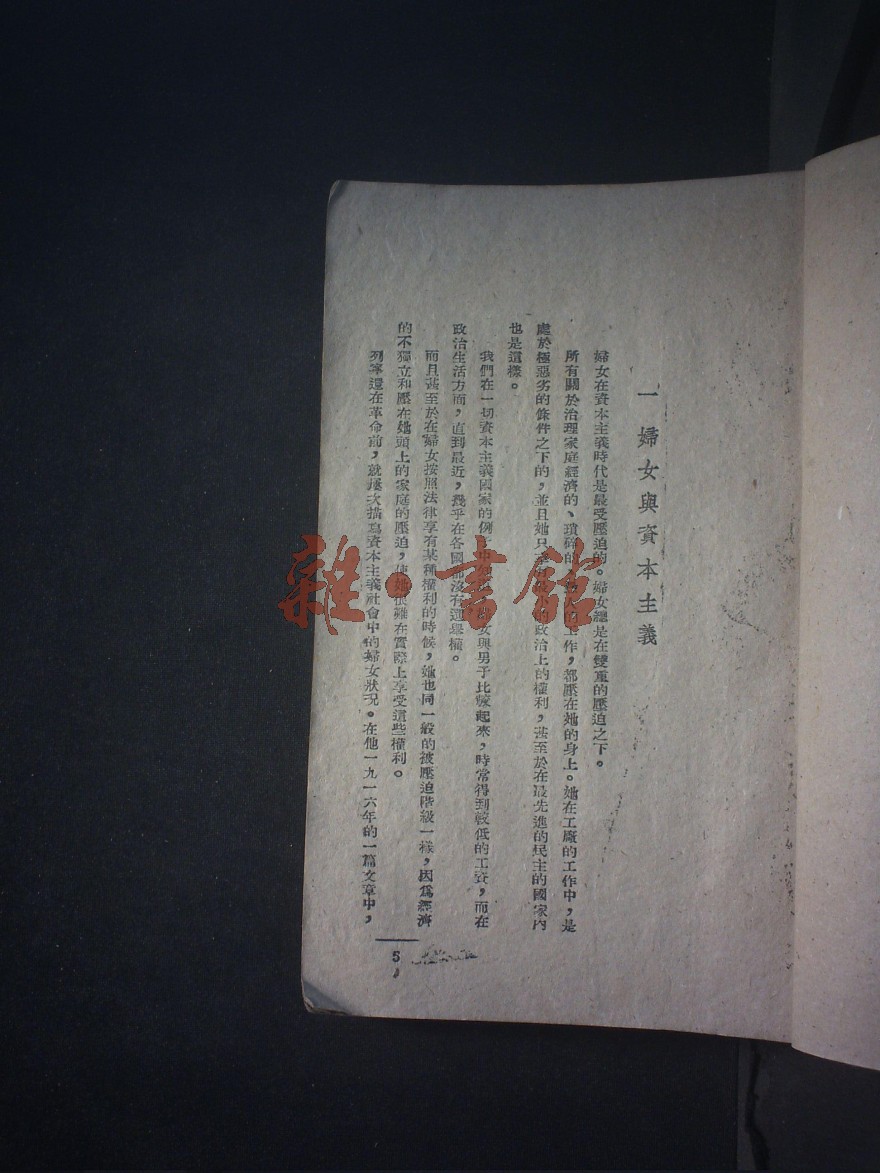 一 婦女與資本主義
婦女在資本主義時代是最受壓迫的。婦女總是在雙重的壓迫之下。
所有關於治理家庭經濟的、瑣碎的、的工作，都壓在她的身上。她在工廠的工作中，是
處於極惡劣的條件之下的，並且她只享有政治上的權利，甚至於在最先進的民主的國家內
也是這樣。
我們在一切資本主義國家的例子中女與男子比較起來，時常得到較低的工資，而在
政治生活方面，直到最近，幾乎在各國都沒有選舉權。
而且甚至於在婦女按照法律享有某種權利的時候，她也同一般的被壓迫階級一樣，因為經濟
的不獨立和壓在她頭上的家庭的壓迫，使她很難在實際上享受這些權利。
列寧還在革命前，就屢次描寫資本主義社會中的婦女狀況。在他一九一六年的一篇文章中，
5
雜·書館